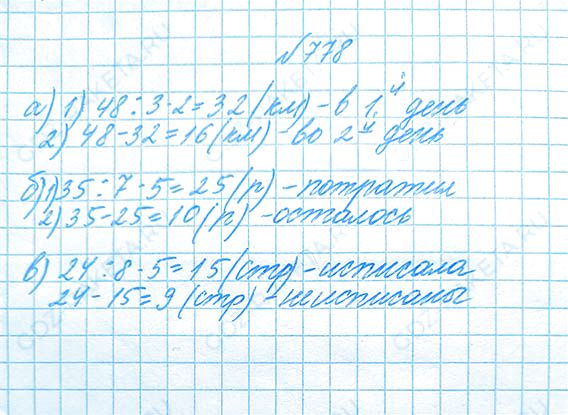 №778
а) 1) 48 : 3 · 2 = 32 (км) - в 1й день
2) 48 - 32 = 16 (км) - во 2й день
б) 1) 35 : 7 · 5 = 25 (р) - потратил
2) 35 - 25 = 10 (р) - осталось
в) 24 : 8 · 5 = 15 (стр) - исписала
24 - 15 = 9 (стр) - неисписаны